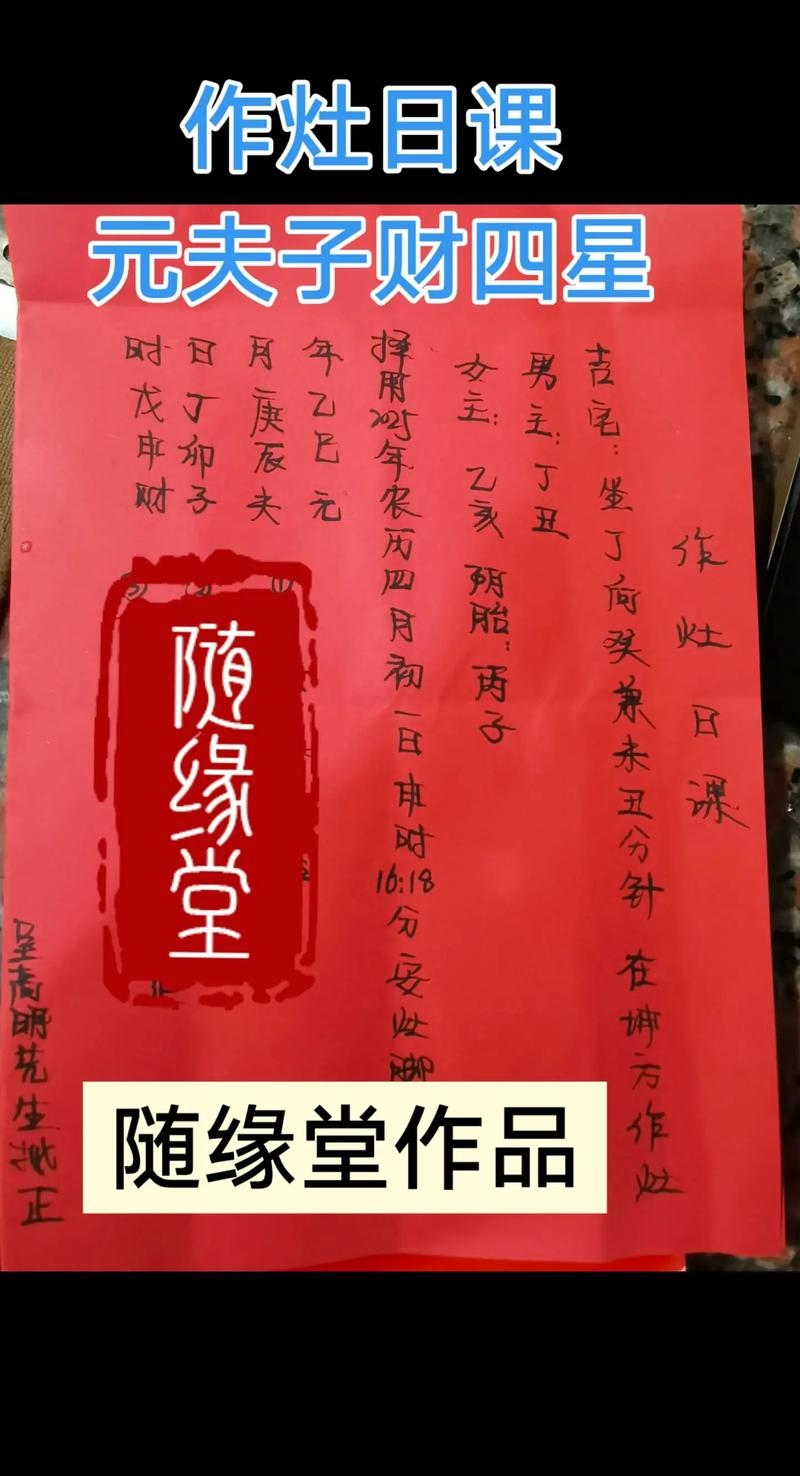 作灶日课
元夫子财四星
作灶日课
吉宅：坐丁向癸兼未丑分针 在坤方作灶
男主：丁丑
女主：乙亥 阴胎：丙子
择用2025年农历四月初一日申时16:18分安灶脚
年乙巳元
月庚辰夫
日丁卯子
时戊申财
①
随缘堂
呈高明先生批正
随缘堂作品